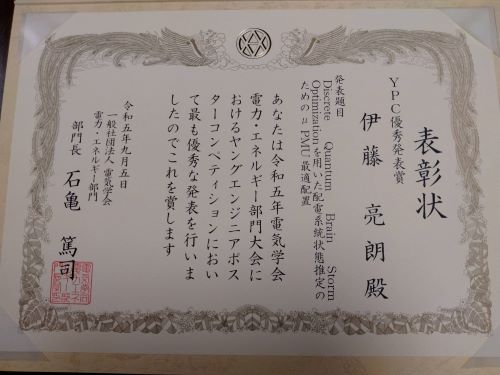 表彰状
YPC優秀発表賞
伊藤 亮朗 殿
発表題目
Discrete Quantum Brain Storm
Optimizationを用いた配電系統状態推定の
ためのμPMU最適配置
あなたは令和五年電気学会
電力・エネルギー部門大会に
おけるヤングエンジニアポス
ターコンペティションにおい
て最も優秀な発表を行いま
したのでこれを賞します
令和五年九月五日
一般社団法人 電気学会
電力・エネルギー部門
部門長 石亀 篤司